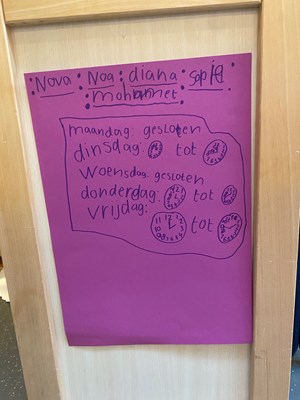 Nova Noa diana Sopie
mohammet
maandag: gesloten
dinsdag: tot
Woensdag gesloten
donderdag: tot
vrijdag:
tot